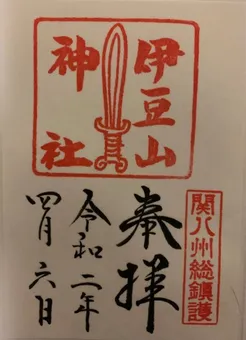 伊豆山
神社
關八州総鎮護
奉拝
令和二年
四月六日